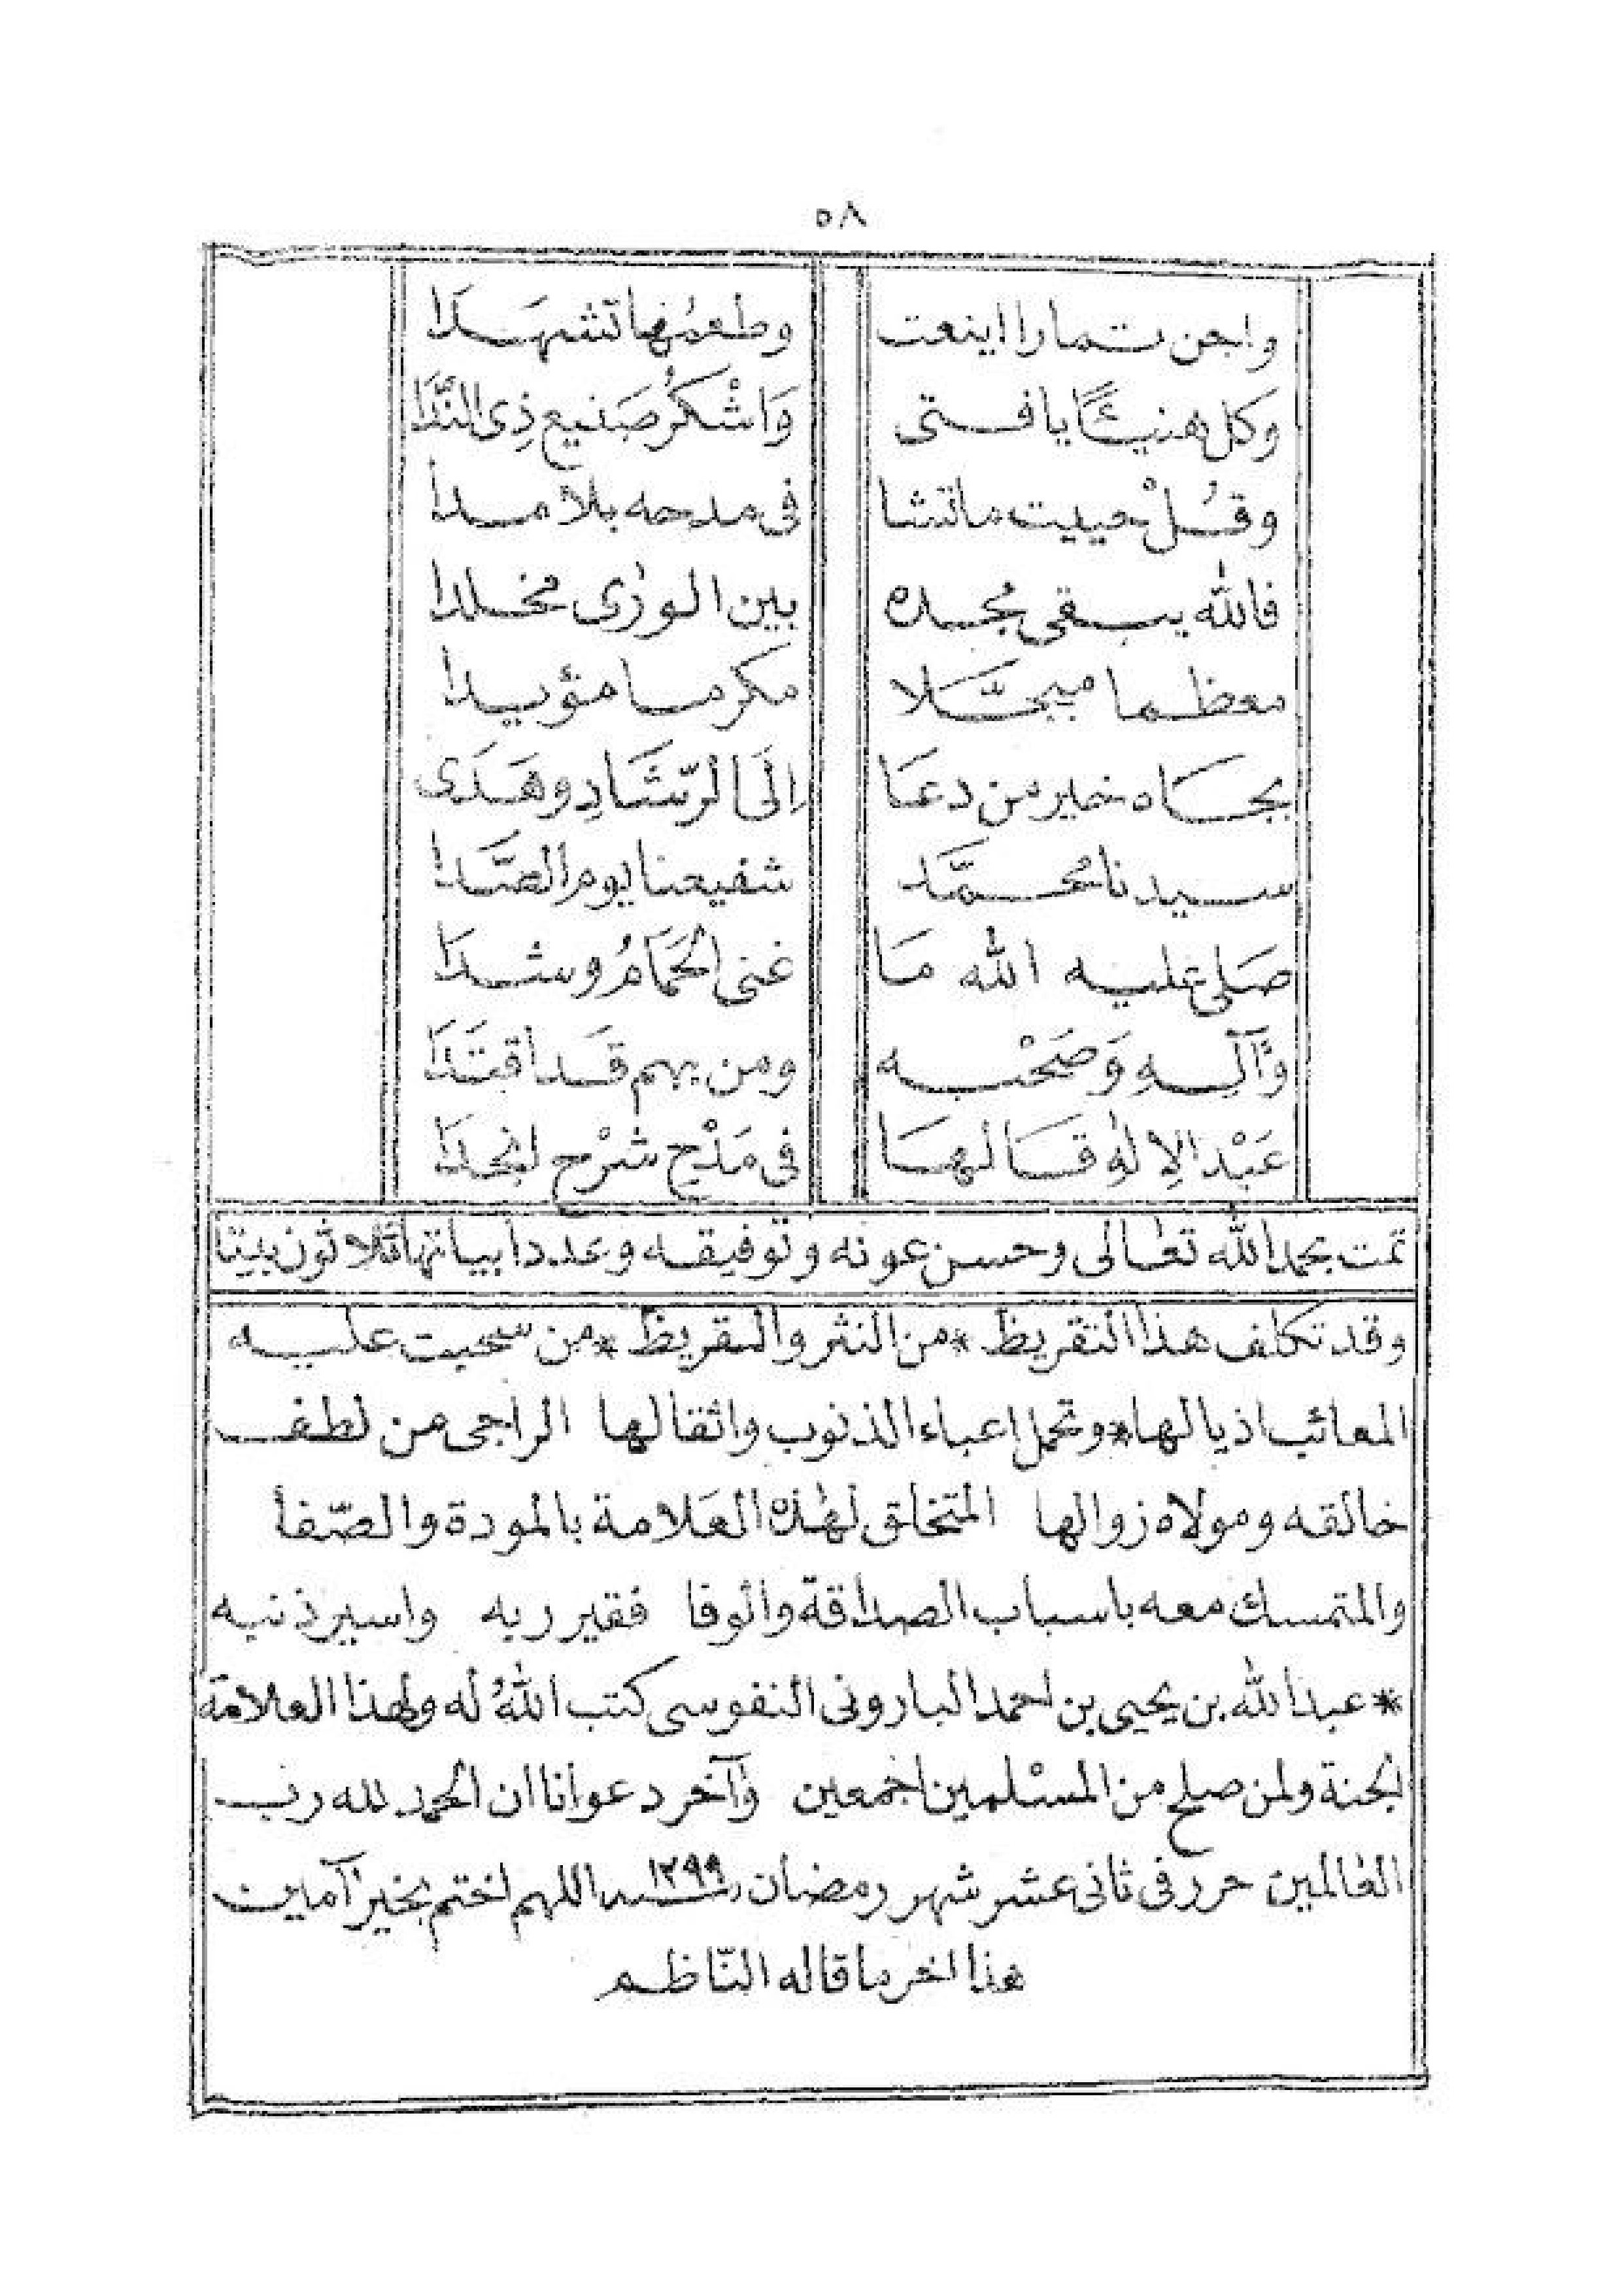 ٥٨
واجن ثمارا اينعت وطعمُها تشهَدَا
وكل هنيئًا يا فتى وَاشْكُرُ صَنيع ذِى النَّدَا
وقُلْ حييت ما تشا فى مدحه بلا مدا
فالله يبقى مُجده بين الورٰى مخلدا
معظما مبجَّلا مكرما مؤيدا
بجاه خير من دعَا اِلَى الرّشَادِ وهَدَى
سيدنا مُحمَّد شفيعنا يوم الصَّدا
صَلى عليه الله مَا غنى الحَمَامُ وشدَا
وَآلِهِ وَصَحْبه ومن بهم قَد اقتَدَا
عَبْد الاِلٰهِ قَالهَا فى مَدْحِ شَرْح انجدَا
تمت بحمد الله تعالى وحسن عونه وتوفيقه وعدد ابياتها ثلاثون بيتا
وقد تكلف هذا التقريظ * من النثر والتقريظ * من سحبت عليه
المعائب اذيالها * وتحمل اعباء الذنوب واثقالها الراجى من لطف
خالقه ومولاه زوالها المتخلق لهٰذه العَلامة بالمودة والصّفا
والمتمسك معه باسباب الصداقة والوفا فقير ربه واسير ذنبه
* عبد الله بن يحيى بن احمد البارونى النفوسى كتب اللهُ له ولهذا العلامة
الجنة ولمن صلح من المسْلمين اجمعين وَآخر دعوانا ان الحمد لله رب
العالمين حرر فى ثانى عشر شهر رمضان سنة ١٢٩٩ اللهم اختم بخير آمين
هذا اخر ما قاله النّاظم